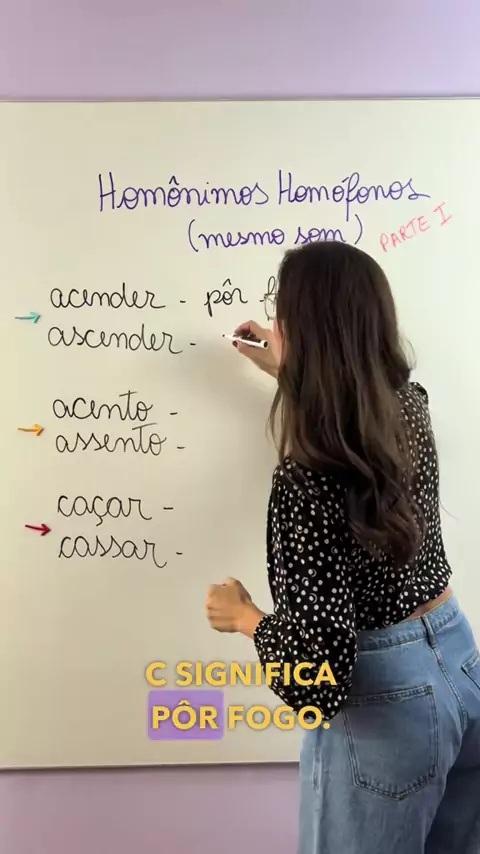 Homônimos Homófonos
(mesmo som)
PARTE I
acender - pôr
ascender -
acento -
assento -
caçar -
cassar -
C SIGNIFICA
PÔR FOGO.